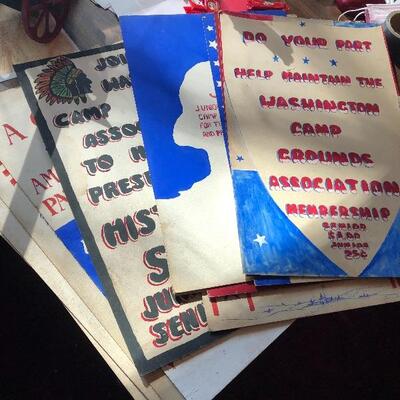 DO YOUR PART
HELP MAINTAIN THE
WASHINGTON
CAMP
GROUNDS
ASSOCIATION
MEMBERSHIP
SENIOR
$1.00
JUNIOR
25¢
JOIN
WA
CAMP
ASSO
TO H
PRESE
HIST
S
JUN
SENI
JUNI
CAMP
FOR T
AND P
A
AM
PA